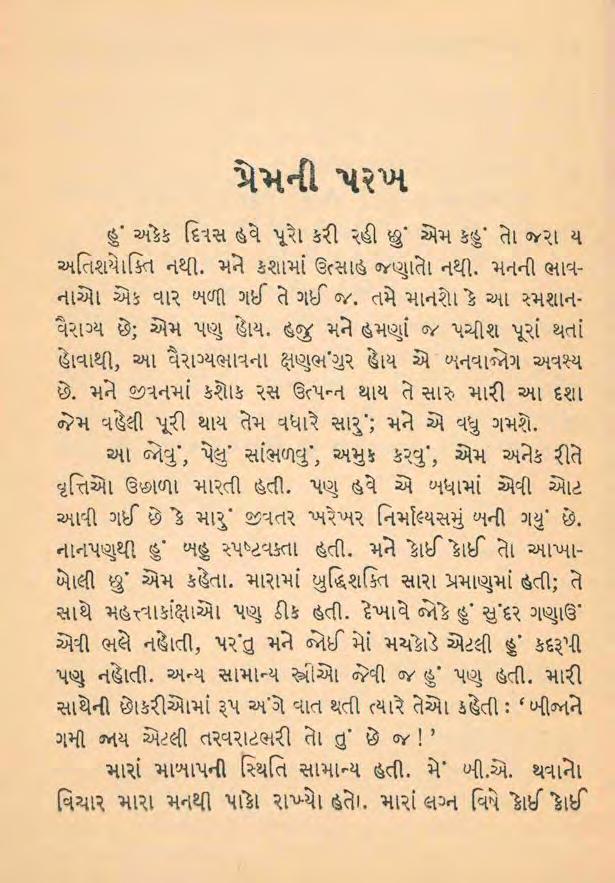 પ્રેમની પરખ
હું અકેક દિવસ હવે પૂરો કરી રહી છું એમ કહું તો જરા ય
અતિશયોક્તિ નથી. મને કશામાં ઉત્સાહ જણાતો નથી. મનની ભાવ-
નાઓ એક વાર બળી ગઈ તે ગઈ જ. તમે માનશો કે આ સ્મશાન-
વૈરાગ્ય છે; એમ પણ હોય. હજુ મને હમણાં જ પચીશ પૂરાં થતાં
હોવાથી, આ વૈરાગ્યભાવના ક્ષણભંગુર હોય એ બનવાજોગ અવશ્ય
છે. મને જીવનમાં કશોક રસ ઉત્પન્ન થાય તે સારુ મારી આ દશા
જેમ વહેલી પૂરી થાય તેમ વધારે સારું; મને એ વધુ ગમશે.
આ જોવું, પેલું સાંભળવું, અમુક કરવું, એમ અનેક રીતે
વૃત્તિઓ ઉછાળા મારતી હતી. પણ હવે એ બધામાં એવી ઓટ
આવી ગઈ છે કે મારું જીવતર ખરેખર નિર્માલ્યસમું બની ગયું છે.
નાનપણથી હું બહુ સ્પષ્ટવક્તા હતી. મને કોઈ કોઈ તો આખા-
બોલી છું એમ કહેતા. મારામાં બુદ્ધિશક્તિ સારા પ્રમાણમાં હતી; તે
સાથે મહત્ત્વાકાંક્ષાઓ પણ ઠીક હતી. દેખાવે જોકે હું સુંદર ગણાઉં
એવી ભલે નહોતી, પરંતુ મને જોઈ મોં મચકોડે એટલી હું કદરૂપી
પણ નહોતી. અન્ય સામાન્ય સ્ત્રીઓ જેવી જ હું પણ હતી. મારી
સાથેની છોકરીઓમાં રૂપ અંગે વાત થતી ત્યારે તેઓ કહેતી : ‘બીજાને
ગમી જાય એટલી તરવરાટભરી તો તું છે જ !’
મારાં માબાપની સ્થિતિ સામાન્ય હતી. મેં બી.એ. થવાનો
વિચાર મારા મનથી પાકો રાખ્યો હતો. મારાં લગ્ન વિષે કોઈ કોઈ